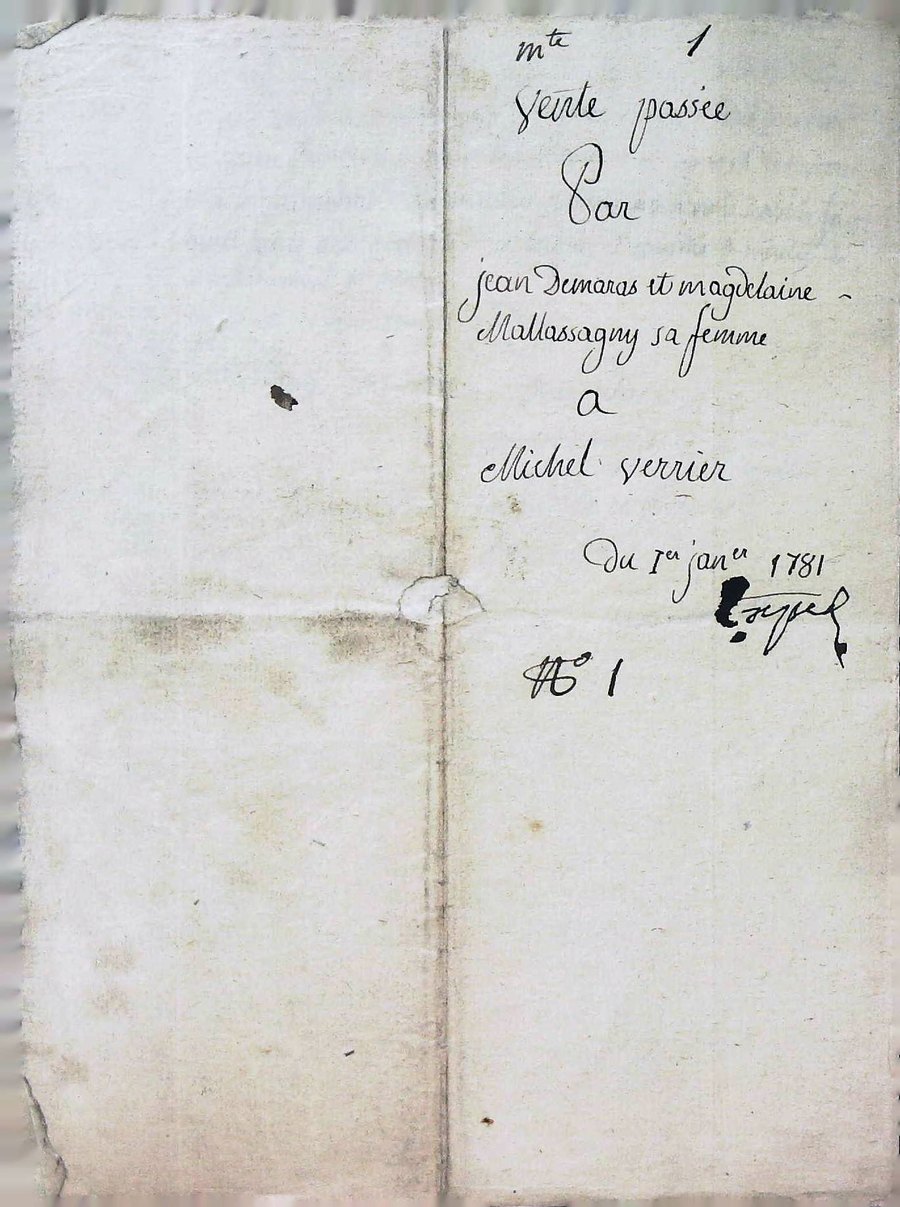 mte 1
Vente passée
Par
jean Demaras et magdelaine -
Mallassagny sa femme
a
Michel verrier
Du 1er janer 1781
No 1